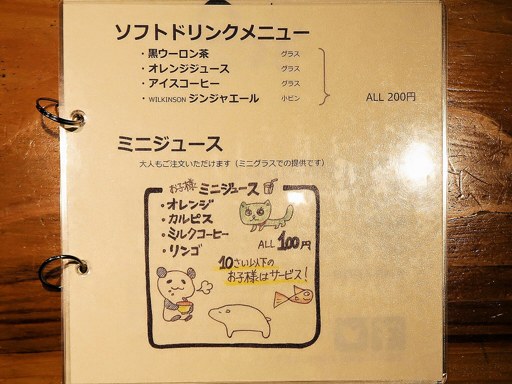 ソフトドリンクメニュー
・黒ウーロン茶 グラス
・オレンジジュース グラス
・アイスコーヒー グラス
・WILKINSON ジンジャエール 小ビン
ALL 200円
ミニジュース
大人もご注文いただけます（ミニグラスでの提供です）
お子様 ミニジュース
・オレンジ
・カルピス
・ミルクコーヒー
・リンゴ
ALL 100円
10さい以下の
お子様はサービス!